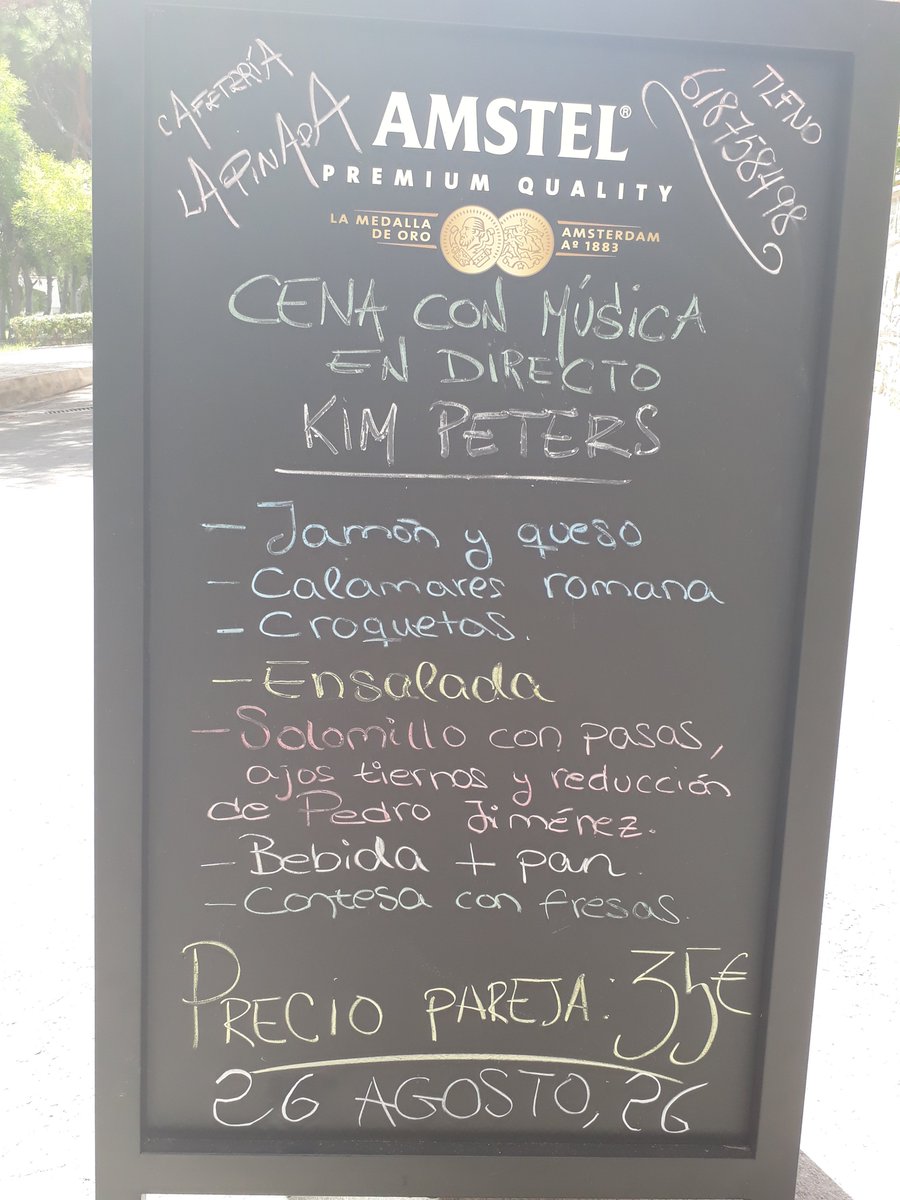 CAFETERÍA
LA PINADA
TLFNO
618758498
AMSTEL®
PREMIUM QUALITY
LA MEDALLA
DE ORO
AMSTERDAM
Aº 1883
CENA CON MÚSICA
EN DIRECTO
KIM PETERS
- Jamón y queso
- Calamares romana
- Croquetas.
- Ensalada
- Solomillo con pasas,
ajos tiernos y reducción
de Pedro Jiménez.
- Bebida + pan.
- Contesa con fresas.
PRECIO PAREJA: 35€
26 AGOSTO, 26